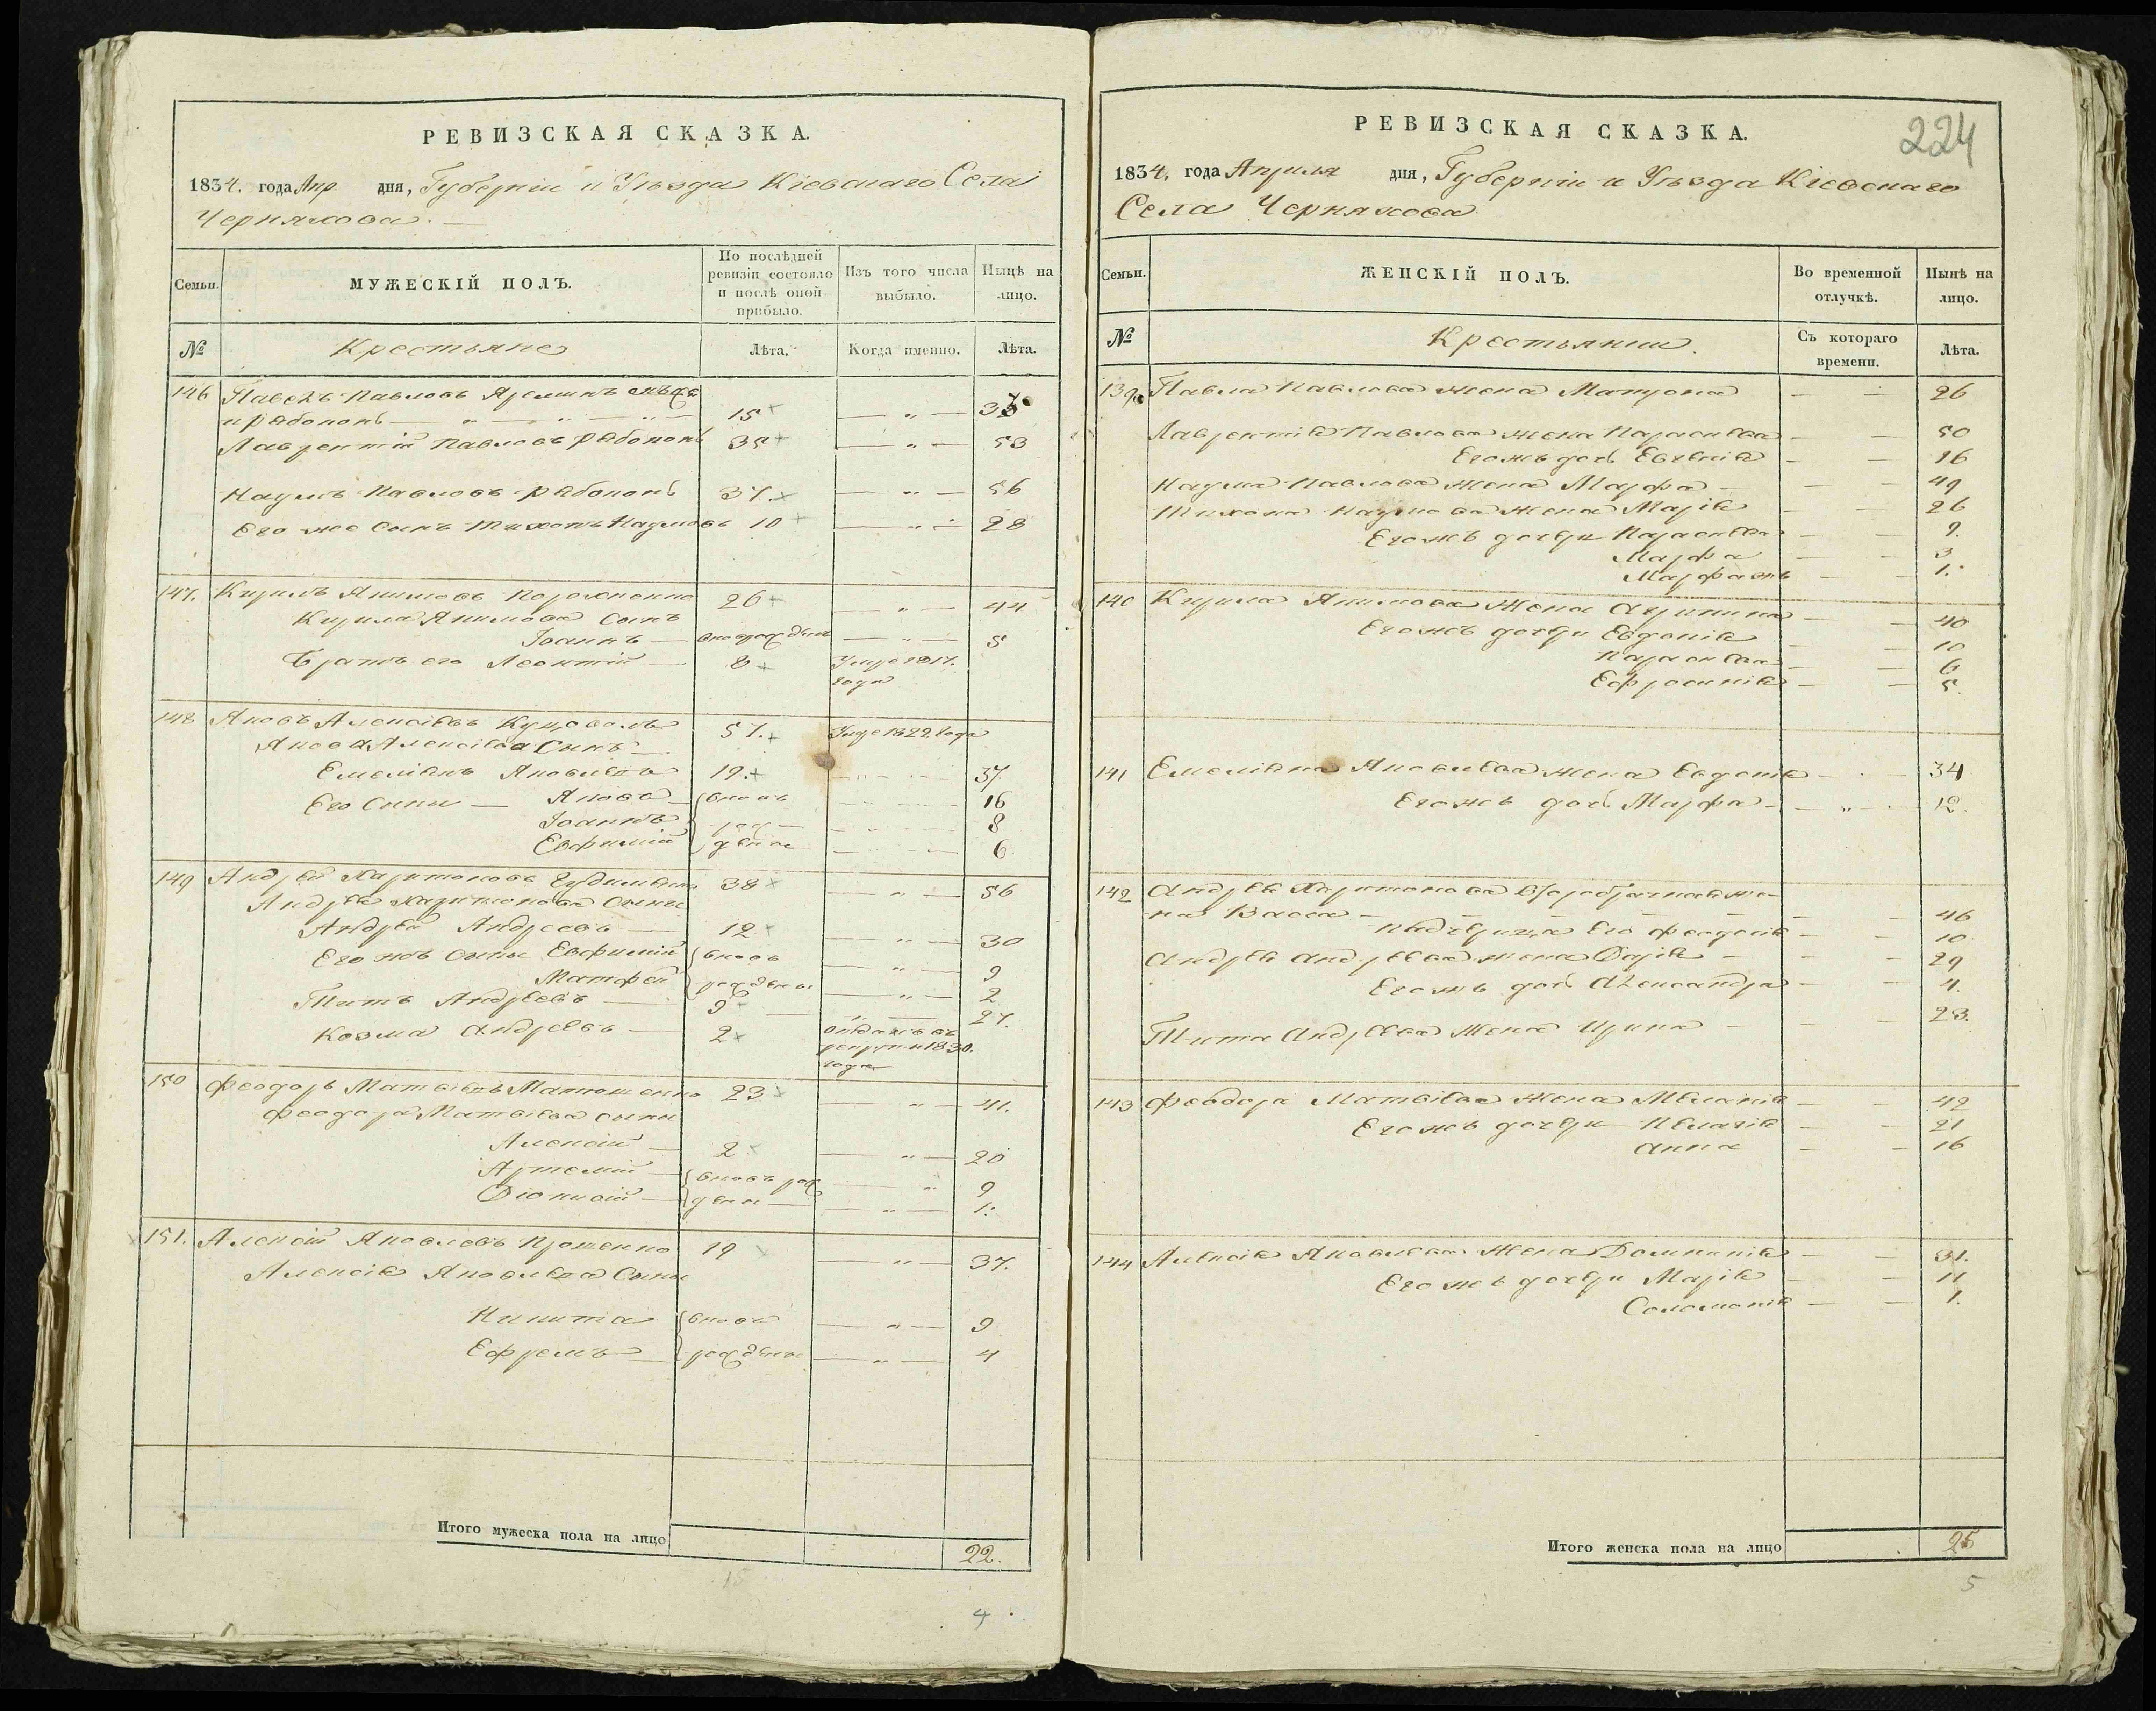 РЕВИЗСКАЯ СКАЗКА.
1834. года Апр. дня, Губерніи и Уѣзда Кіевскаго Села
Черняхова. —
Семьи. МУЖЕСКІЙ ПОЛЪ. По послѣдней ревизіи состояло и послѣ оной прибыло. Изъ того числа выбыло. Нынѣ на лицо.
№ Крестьяне Лѣта. Когда именно. Лѣта.
146 Павелъ Павловъ
15 — „ —
Лаврентій Павловъ Рябоконь 35 — „ — 53
Наумъ Павловъ Рябоконь 37. — „ — 56
Его же сынъ Тихонъ Наумовъ 10 — „ — 28
147. Кирилъ Акимовъ 26 — „ — 44
Кирила Акимова сынъ
Іоаннъ — вновь рожденъ — „ — 5
Братъ его Леонтій — 8 Умре 1817.
года
148 Яковъ Алексіевъ Куцоволъ 57. Умре 1829. года
Якова Алексіева сынъ —
Емеліянъ Яковлевъ 19. 37.
Его сыны — Яковъ вновь 16
Іоаннъ рож- 8
Евфимій дены 6
149 Андрѣй Харитоновъ 38 — „ — 56
Андрѣя Харитонова сыны
Андрѣй Андреевъ — 12 — „ — 30
Его жъ сыны Евфимій вновь — „ — 9
Матфей рождены — „ — 2
Титъ Андрѣевъ — 9 — „ — 27.
Козма Андрѣевъ — 2 отданъ въ
рекруты 1830.
года
150 Феодоръ Матвіевъ Матюшенко 23 — „ — 41.
Феодора Матвіева сыны
Алексій — 2 — „ — 20
Артемій — вновь рож — „ 9
Діонисій — дены — „ — 1.
151. Алексій Яковлевъ Проценко 19 — „ — 37.
Алексія Яковлева сыны
Никита вновь — „ — 9
Ефремъ рождены — „ — 4
Итого мужеска пола на лицо 22.
15
4
РЕВИЗСКАЯ СКАЗКА.
224
1834. года Апрѣля дня, Губерніи и Уѣзда Кіевскаго
Села Черняхова
Семьи. ЖЕНСКІЙ ПОЛЪ. Во временной отлучкѣ. Нынѣ на лицо.
№ Крестьянки. Съ котораго времени. Лѣта.
139 Павла Павлова жена Матрона — — 26
Лаврентія Павлова жена Параскева — — 50
Егожъ дочь Евгенія — — 16
Наума Павлова жена Марфа — — — 49
Тихона Наумова жена Марія — — 26
Егожъ дочери Параскева — — 9.
Марфа — — 3
Марфа жъ — — 1.
140 Кирила Акимова жена Акулина — — 40
Егожъ дочери Евдокія — — 10
Параскева — — 6
Ефросинія — — 5.
141 Емеліяна Яковлева жена Евдокія — — 34
Егожъ дочь Марфа — — „ — 12.
142 Андрѣя Харитонова второбрачная же-
на Васса — — — 46
Падчерица его Феодосія — — 10
Андрѣя Андрѣева жена Дарія — — — 29
Егожъ дочь Александра — — 4.
Тита Андрѣева жена Ирина — — — 23.
143 Феодора Матвіева жена Меланія — — 42
Егожъ дочери Пелагія — — 21
Анна — — 16
144 Алексія Яковлева жена Домникія — — 31.
Егожъ дочери Марія — — 11
Соломонія — — 1.
Итого женска пола на лицо 25
5